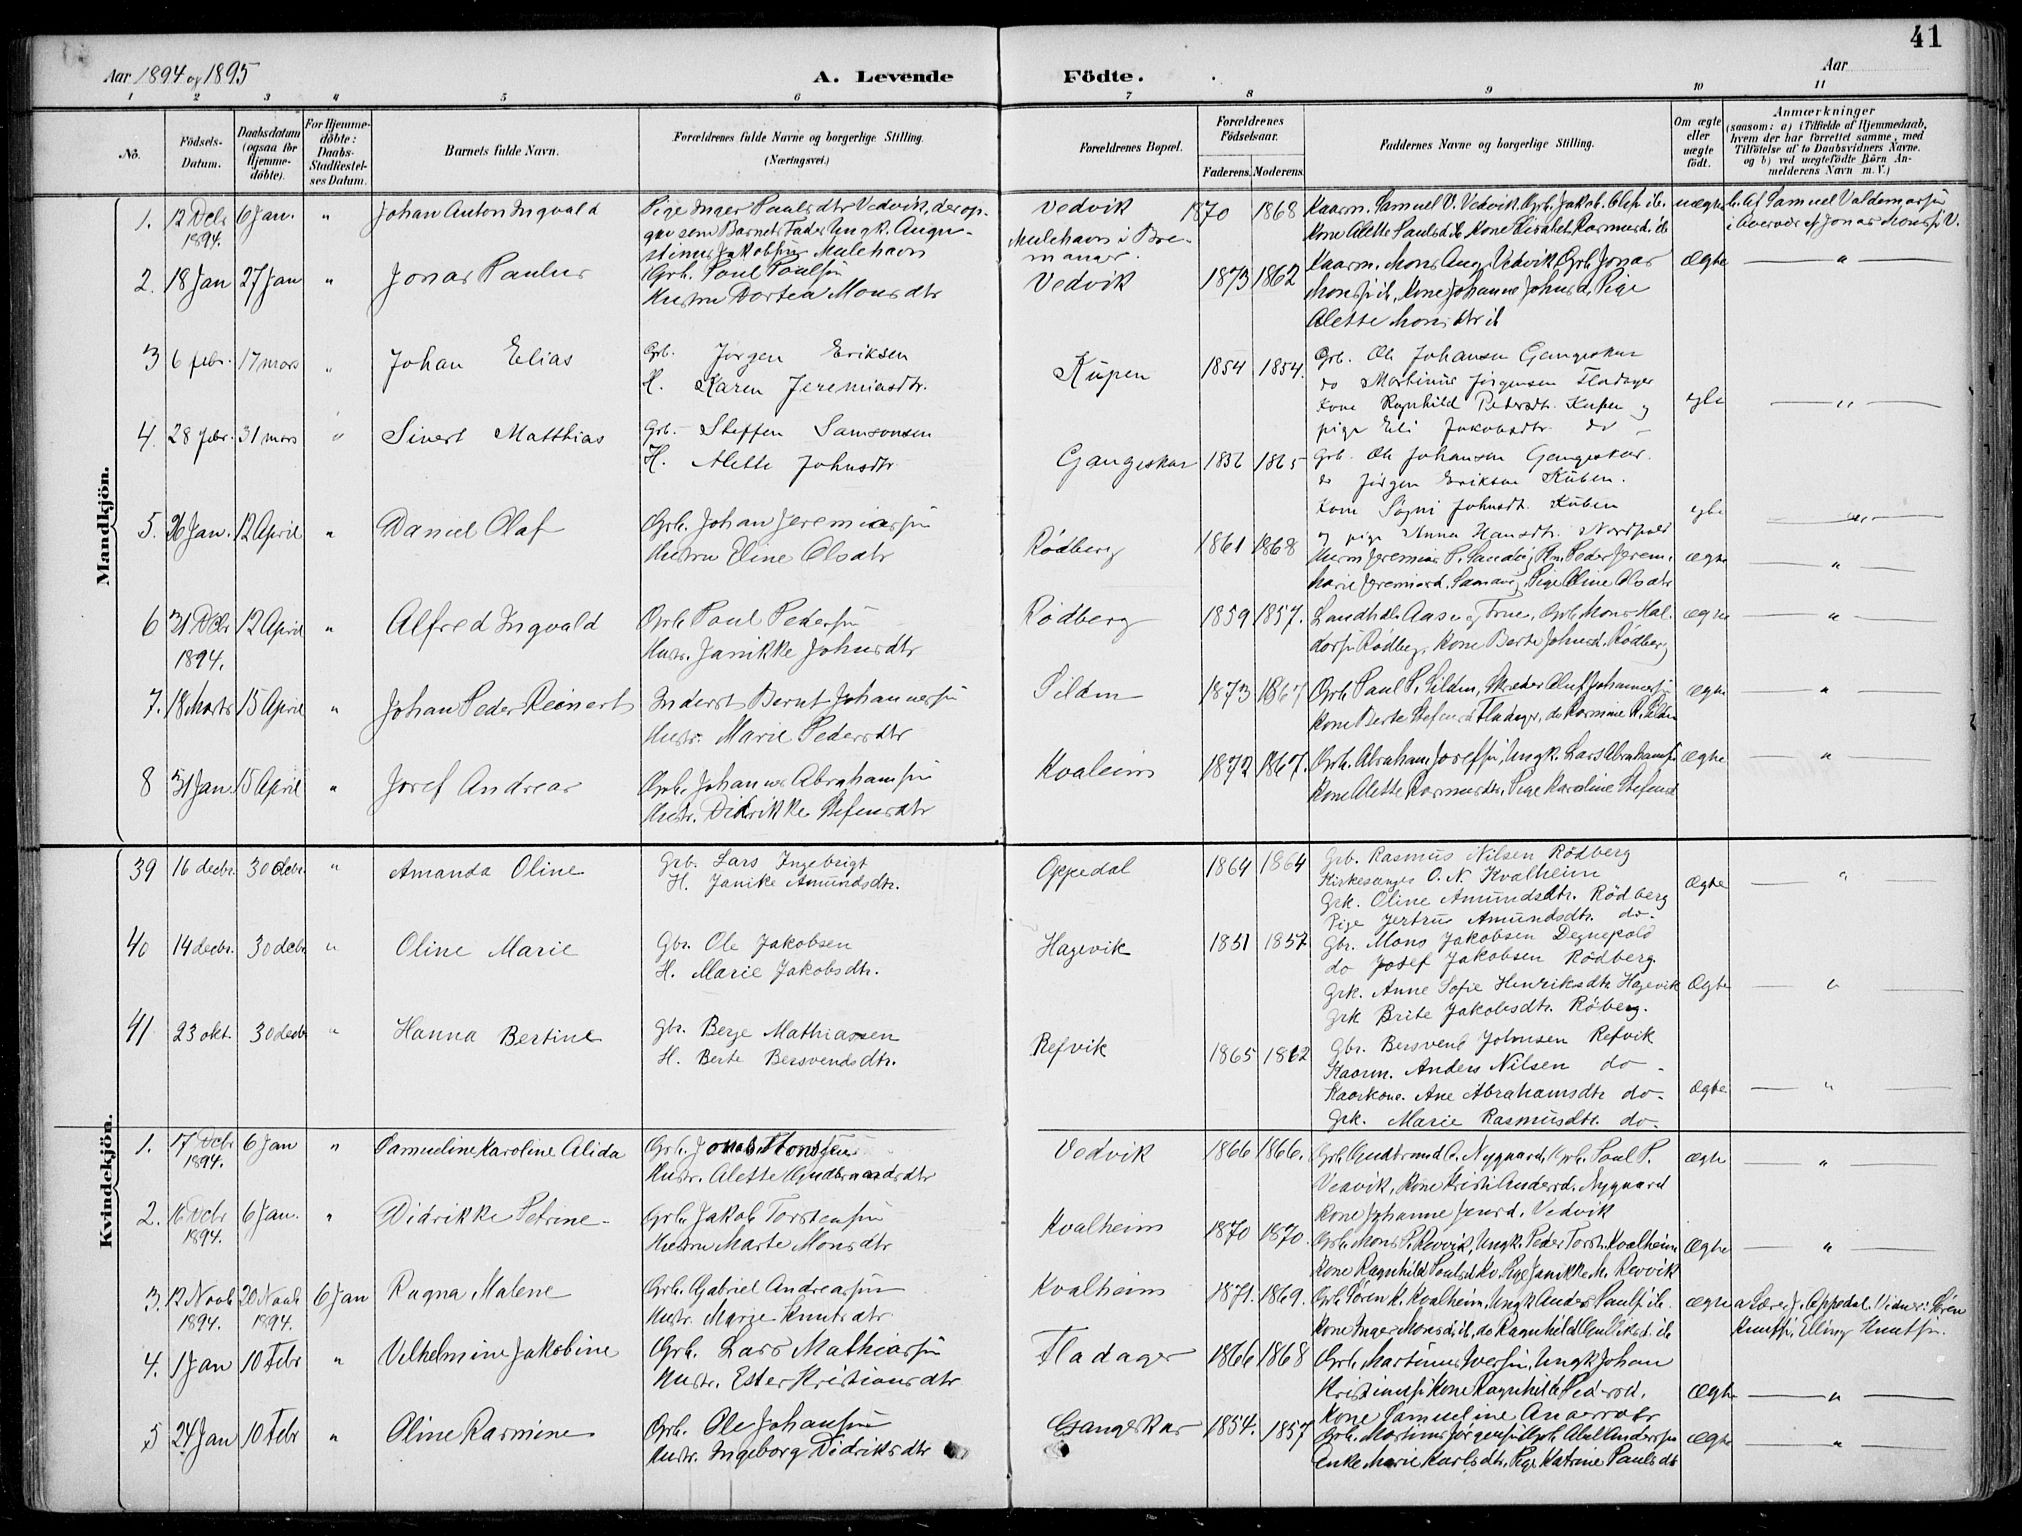 41
Aar 1894 og 1895
A. Levende Födte.
Aar
1 2 3 4 5 6 7 8 9 10 11
No.
Födsels-Datum.
Daabsdatum (ogsaa for Hjemmedöbte).
For Hjemmedöbte: Daabs-Stadfæstelses Datum.
Barnets fulde Navn.
Forældrenes fulde Navne og borgerlige Stilling. (Næringsvei.)
Forældrenes Bopæl.
Forældrenes Födselsaar.
Faderens. Moderens.
Faddernes Navne og borgerlige Stilling.
Om ægte eller uægte födt.
Anmærkninger (saasom: a) i Tilfælde af Hjemmedaab, hvem der har forrettet samme, med Tilföielse af to Daabsvidners Navne. og b) ved uægtefödte Börn Anmelderens Navn m. V.)
Mandkjön.
1. 12 Decbr 1894. 6 Jan. " Johan Anton Ingvald
Pige Inger Paulsdtr Vedvik, der op-
gav som Barnets Fader Ungk. Augu-
stinus Jakobsen Mulehavn
Vedvik
Mulehavn i Bre-
manger.
1870 1868
Kaarm. Samuel V. Vedvik, Grb. Jakob Olsen ib.
Kone Alette Paulsd. ib. Kone Elisabet Rasmusd. ib
uægte
b. Af Samuel Valdemarsen
i Overvær af Jonas Monsen V.
2. 18 Jan 27 Jan " Jonas Paulus
Grb. Paul Paulsen
Hustru Dortea Monsdtr
Vedvik 1873 1862
Kaarm. Mons Aug. Vedvik, Grb. Jonas
Monsen ib, Kone Johanne Johnsd, Pige
Alette Monsdtr ib
Ægte "
3 6 febr. 17 mars " Johan Elias
Grb. Jørgen Eriksen
H. Karen Jeremiasdtr.
Kupen 1854 1854.
Grb. Ole Johansen Gangeskar
do Martinus Jørgensen Fladager
Kone Ragnhild Pedersdt. Kupen og
pige Eli Jakobsdtr. do
egte "
4. 28 febr. 31 mars " Sivert Matthias
Grb. Steffen Samsonsen
H. Alette Johnsdtr.
Gangeskar 1856 1865
Grb. Ole Johansen Gangeskar.
do Jørgen Eriksen Kuben.
Kone Sogni Johnsdt. Kuben
og pige Anna Hansdtr. Nordpold
egte "
5. 26 Jan. 12 April " Daniel Olaf
Grb. Johan Jeremiassen
Hustru Eline Olsdtr
Rødberg 1861 1868
Marie Jeremiasd. Pige Oline Olsdtr
ægte "
6 31 Decbr 1894. 12 April " Alfred Ingvald
Grb. Paul Pedersen
Hustr. Janikke Johnsdtr
Rødberg 1859 1857.
Landhdl. Aasen, Grb. Mons Hal-
dorsen Rødberg, Kone Berte Johnsd. Rødberg
ægte "
7. 18 Marts 15 April " Johan Peder Reinert
Inderst Bernt Johannessen
Hustr. Marie Pedersdtr
Silden 1873 1867
Grb. Paul P. Silden, Skræder Oluf Johannessen
Kone Berte Stefensd Fladager, do Rasmine R. Silden
ægte "
8 31 Jan. 15 April " Josef Andreas
Grb. Johannes Abrahamsen
Hustr. Didrikke Stefensdtr
Kvaleim 1872 1867.
Grb. Abraham Josefsen, Ungk. Lars Abrahamsen
Kone Alette Rasmusdtr. Pige Karoline Stefensd
Ægte "
Kvindekjön.
39 16 decbr. 30 decbr. " Amanda Oline
Grb. Lars Ingebrigt
H. Janike Amundsdtr.
Oppedal 1864 1864
Grb. Rasmus Nilsen Rödberg
Kirkesanger O. N. Kvalheim
Grk. Oline Amundsdtr. Rödberg
Pige Jertrus Amundsdtr. do.
Ægte "
40 14 decbr. 30 decbr " Oline Marie
Gbr. Ole Jakobsen
H. Marie Jakobsdtr.
Hagevik 1851 1857
Gbr. Mons Jakobsen Degnepold
do Josef Jakobsen Rödberg.
Grk. Anne Sofie Henriksdtr Hagevik
Grk Brite Jakobsdtr. Röberg.
Ægte "
41 23 okt. 30 decbr " Hanna Bertine
Gbr. Berge Mathiasen
H. Berte Bersvendsdtr.
Refvik 1865 1862
Gbr. Bersvend Johnsen Refvik
Kaarm. Anders Nilsen do
Kaarkone. Ane Abrahamsdtr do
Grk. Marie Rasmusdtr. do
Ægte "
1. 17 Decbr 1894. 6 Jan " Samueline Karoline Alida
Grb. Jonas Monssen
Hustr. Alette Gudbrandsdtr
Vedvik 1866 1866.
Grb. Gudbrand A. Nygaard, Grb. Paul P.
Vedvik, Kone Kristi Andersd. Nygaard
Kone Johanne Jensd. Vedvik
ægte "
2. 16 Decbr 1894. 6 Jan. " Didrikke Petrine
Grb. Jakob Torstensen
Hustru Marte Monsdtr
Kvalheim 1870 1870.
Grb. Mons P. Revvik, Ungk. Peder Torst. Kvalheim
Kone Ragnhild Paulsd Kv. Pige Janikke M. Revvik
Ægte "
3. 12 Novb. 1894. 20 Novb 1894. 6 Jan Ragna Malene
Grb. Gabriel Andreassen
Hustr. Marie Knutsdtr
Kvalheim 1871. 1869.
Grb. Søren K. Kvalheim, Ungk Anders Paulsen ib.
Kone Inger Monsd. ib, do Ragnhild Gulliksd. ib
ægte
a. Lærer J. Oppedal. Vidner: Søren
Knutsen, Elling Knutsen.
4. 1 Jan 10 Febr " Vilhelmine Jakobine
Grb. Lars Mathiassen
Hustr. Ester Kristiansdtr
Fladager 1866 1868
Grb. Martinus Iversen, Ungk Johan
Kristiansen Kone Ragnhild Pedersd.
Kone Samueline Andersdtr
Ægte "
5 24 Jan 10 Febr " Oline Rasmine
Grb. Ole Johansen
Hustr. Ingeborg Didriksdtr
Gangeskar 1854. 1857
Grb. Martinus Jørgensen Grb. Abel Anderssen
Enke Marie Karlsdtr. Pige Katrine Paulsdt
ægte "